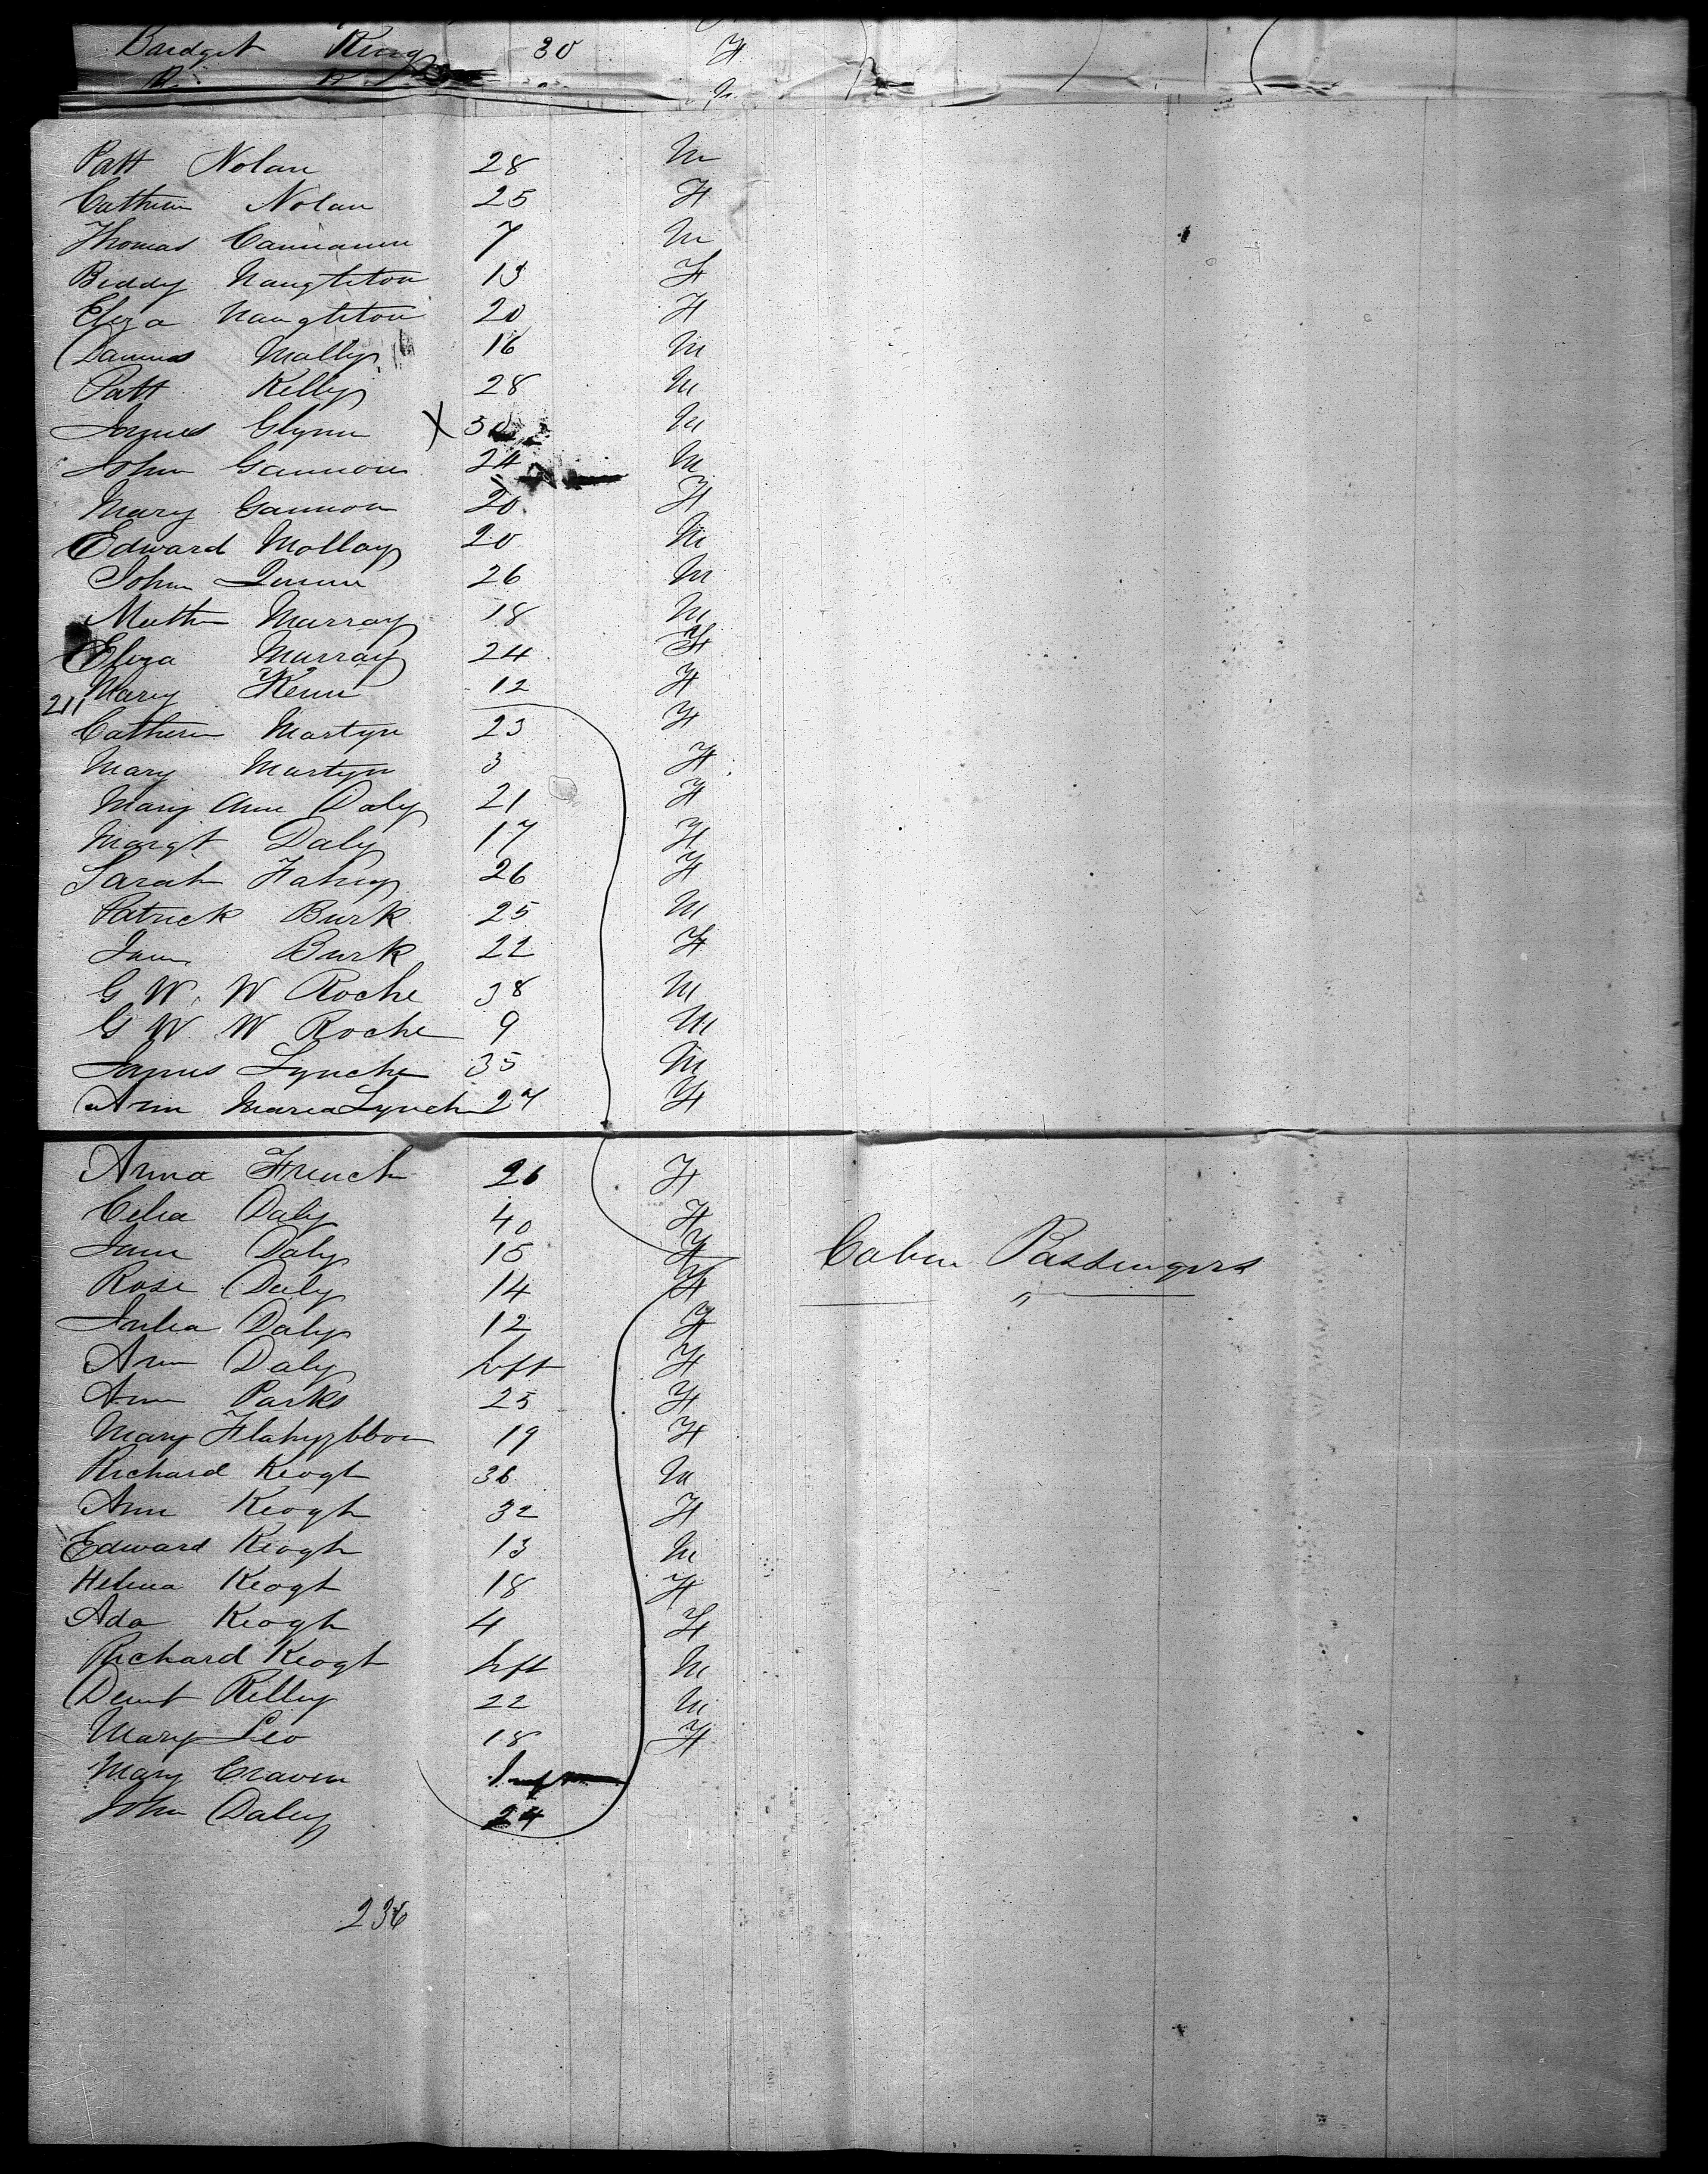 Bridget King 30 F
Patt Nolan 28 M
Cathrin Nolan 25 F
Thomas 7 M
Biddy Naughton 13 F
Eliza Naughton 20 F
Mally 16 M
Patt Kelly 28 M
James Glynn X 30 M
John Gannon 24 M
Mary Gannon 20 F
Edward Molloy 20 M
John Quinn 26 M
Murray 18 M
Eliza Murray 24 F
211 Mary 12 F
Cathrin Martyn 23 F
Mary Martyn 3 F
Mary Ann Daly 21 F
Margt Daly 17 F
Sarah Fahey 26 F
Patrick Burk 25 M
Jane Burk 22 F
G W. W Roche 38 M
G W. W Roche 9 M
James Lynche 35 M
Ann Maria Lynch 27 F
Anna French 26 F
Celia Daly 40 F
Jane Daly 15 F Cabin Passengers
Rose Daly 14 F
Julia Daly 12 F
Ann Daly Inft F
Ann Parks 25 F
Mary 19 F
Richard Keogh 36 M
Ann Keogh 32 F
Edward Keogh 13 M
Helena Keogh 18 F
Ada Keogh 4 F
Richard Keogh Inft M
Relley 22 M
Mary Leo 18 F
Mary Craven
John Daley 24
236